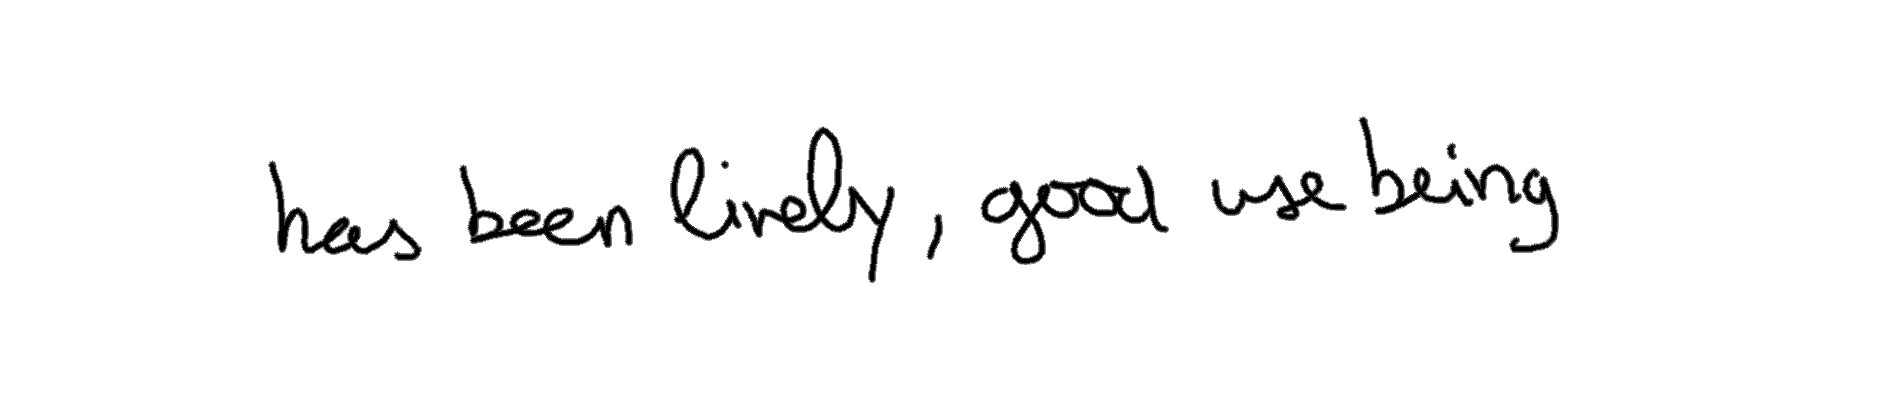 has been lively, good use being